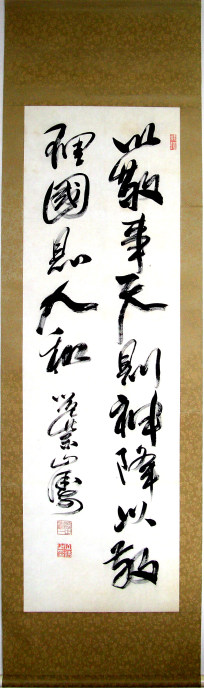 以敬事天則神降以敬
理國則人和 紫山